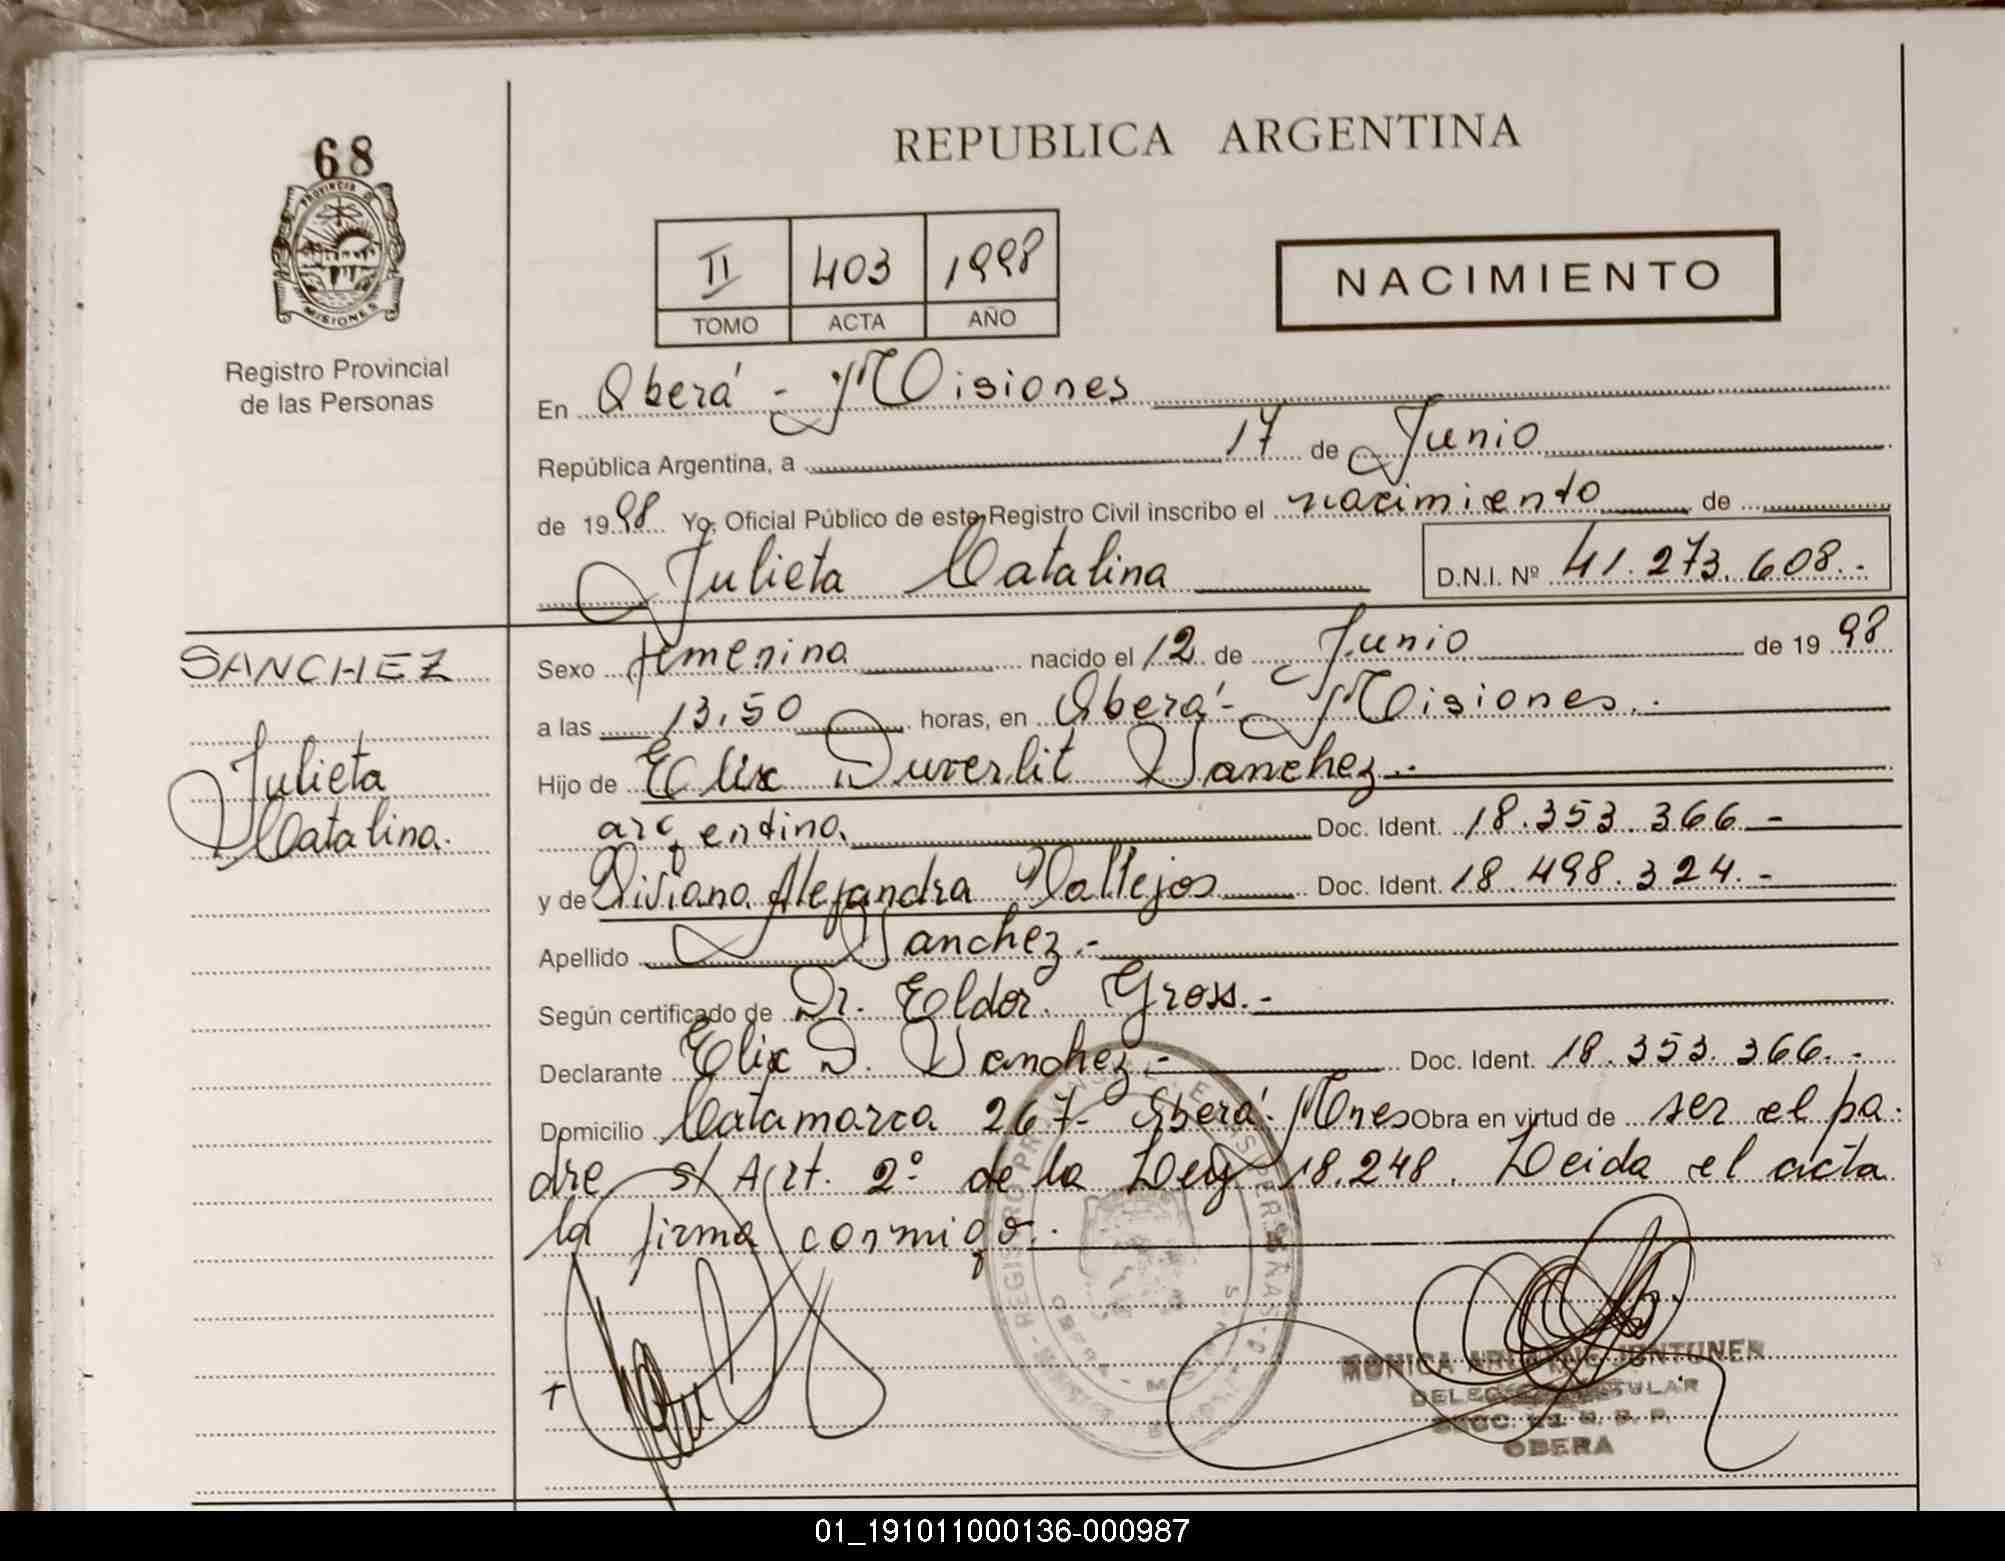 68
PROVINCIA DE
MISIONES
Registro Provincial
de las Personas
REPUBLICA ARGENTINA
II 403 1998
TOMO ACTA AÑO
NACIMIENTO
En Oberá - Misiones
República Argentina, a 17 de Junio
de 1998 Yo, Oficial Público de este Registro Civil inscribo el nacimiento de
Julieta Catalina D.N.I. Nº 41.273.608.-
SANCHEZ
Julieta
Catalina.
Sexo femenina nacido el 12 de Junio de 1998
a las 13,50 horas, en Oberá - Misiones.-
Hijo de Elix Duverlit Sanchez.-
argentino. Doc. Ident. 18.353.366.-
y de Viviana Alejandra Vallejos Doc. Ident. 18.498.324.-
Apellido Sanchez.-
Según certificado de Dr. Eldor Gross.-
Declarante Elix D. Sanchez.- Doc. Ident. 18.353.366.-
Domicilio Catamarca 267- Oberá- Mnes Obra en virtud de ser el pa-
dre s/ Art. 2º de la Ley 18.248. Leida el acta
la firma conmigo.-
MONICA
TITULAR
OBERA
01_191011000136-000987